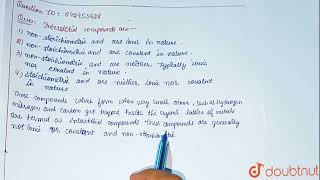 Question ID: 642753928
Ques: Interstitial compounds are --
1) non-stoichiometric and are ionic in nature.
2) non-stoichiometric and are covalent in nature.
3) non-stoichiometric and are neither typically ionic
nor covalent in nature.
4) stoichiometric and are neither ionic nor covalent
in nature
Those compounds which form when very small atoms, such as Hydrogen
nitrogen and carbon get trapped inside the crystal lattice of metals
are termed as interstitial compounds. These compounds are generally
not ionic or covalent and non-stoichiometric
doubtnut